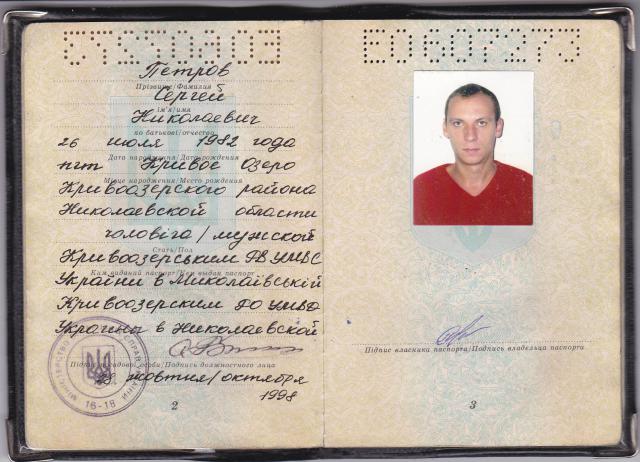 Петров
Прізвище/Фамилия
Сергей
ім'я/имя
Николаевич
по батькові/отчество
26 июля 1982 года
Дата народження/Дата рождения
пгт Кривое Озеро
Місце народження/Место рождения
Кривоозерского района
Николаевской области
чоловіча/мужской
Стать/Пол
Кривоозерським РВ УМВС
Ким виданий паспорт/Кем выдан паспорт
України в Миколаївській
Кривоозерским РО УМВД
Украины в Николаевской
Підпис посадової особи/Подпись должностного лица
жовтня/октября
1998
16-18
2
Підпис власника паспорта/Подпись владельца паспорта
3